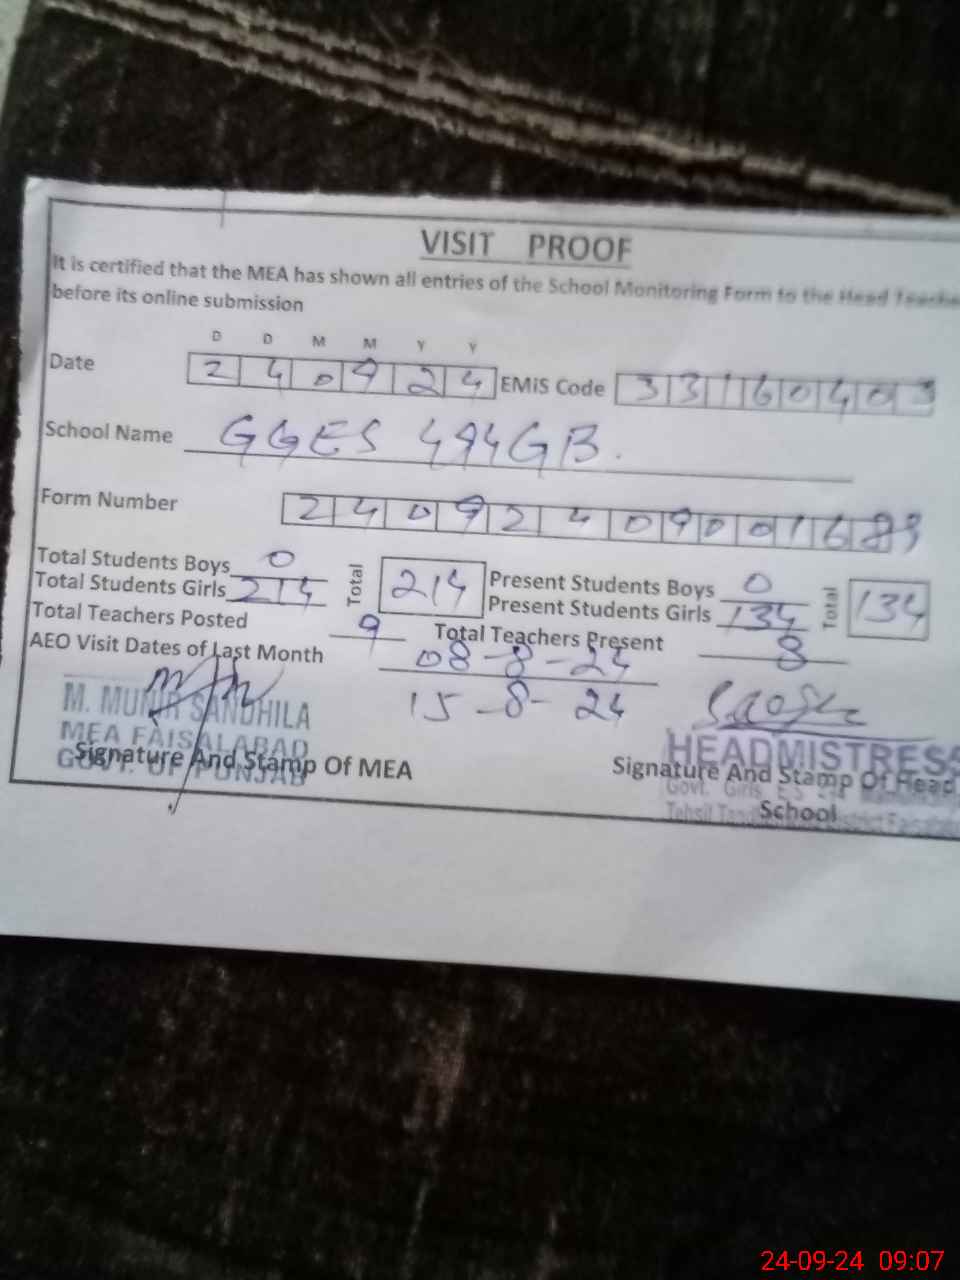 VISIT PROOF
It is certified that the MEA has shown all entries of the School Monitoring Form to the Head Teacher
before its online submission
D D M M Y Y
Date 2 4 0 9 2 4 EMiS Code 3 3 1 6 0 4 0 3
School Name GGES 494GB.
Form Number 2 4 0 9 2 4 0 9 0 0 1 6 8 9
Total Students Boys 0 Total 214 Present Students Boys 0 Total 134
Total Students Girls 214 Present Students Girls 134
Total Teachers Posted 9 Total Teachers Present 8
AEO Visit Dates of Last Month 08-8-24
15-8-24
M. MUNIR SANDHILA
MEA FAISALABAD
GOVT. OF PUNJAB
Signature And Stamp Of MEA
HEADMISTRESS
Signature And Stamp Of Head
Govt. Girls E S
School
Tehsil District
24-09-24 09:07